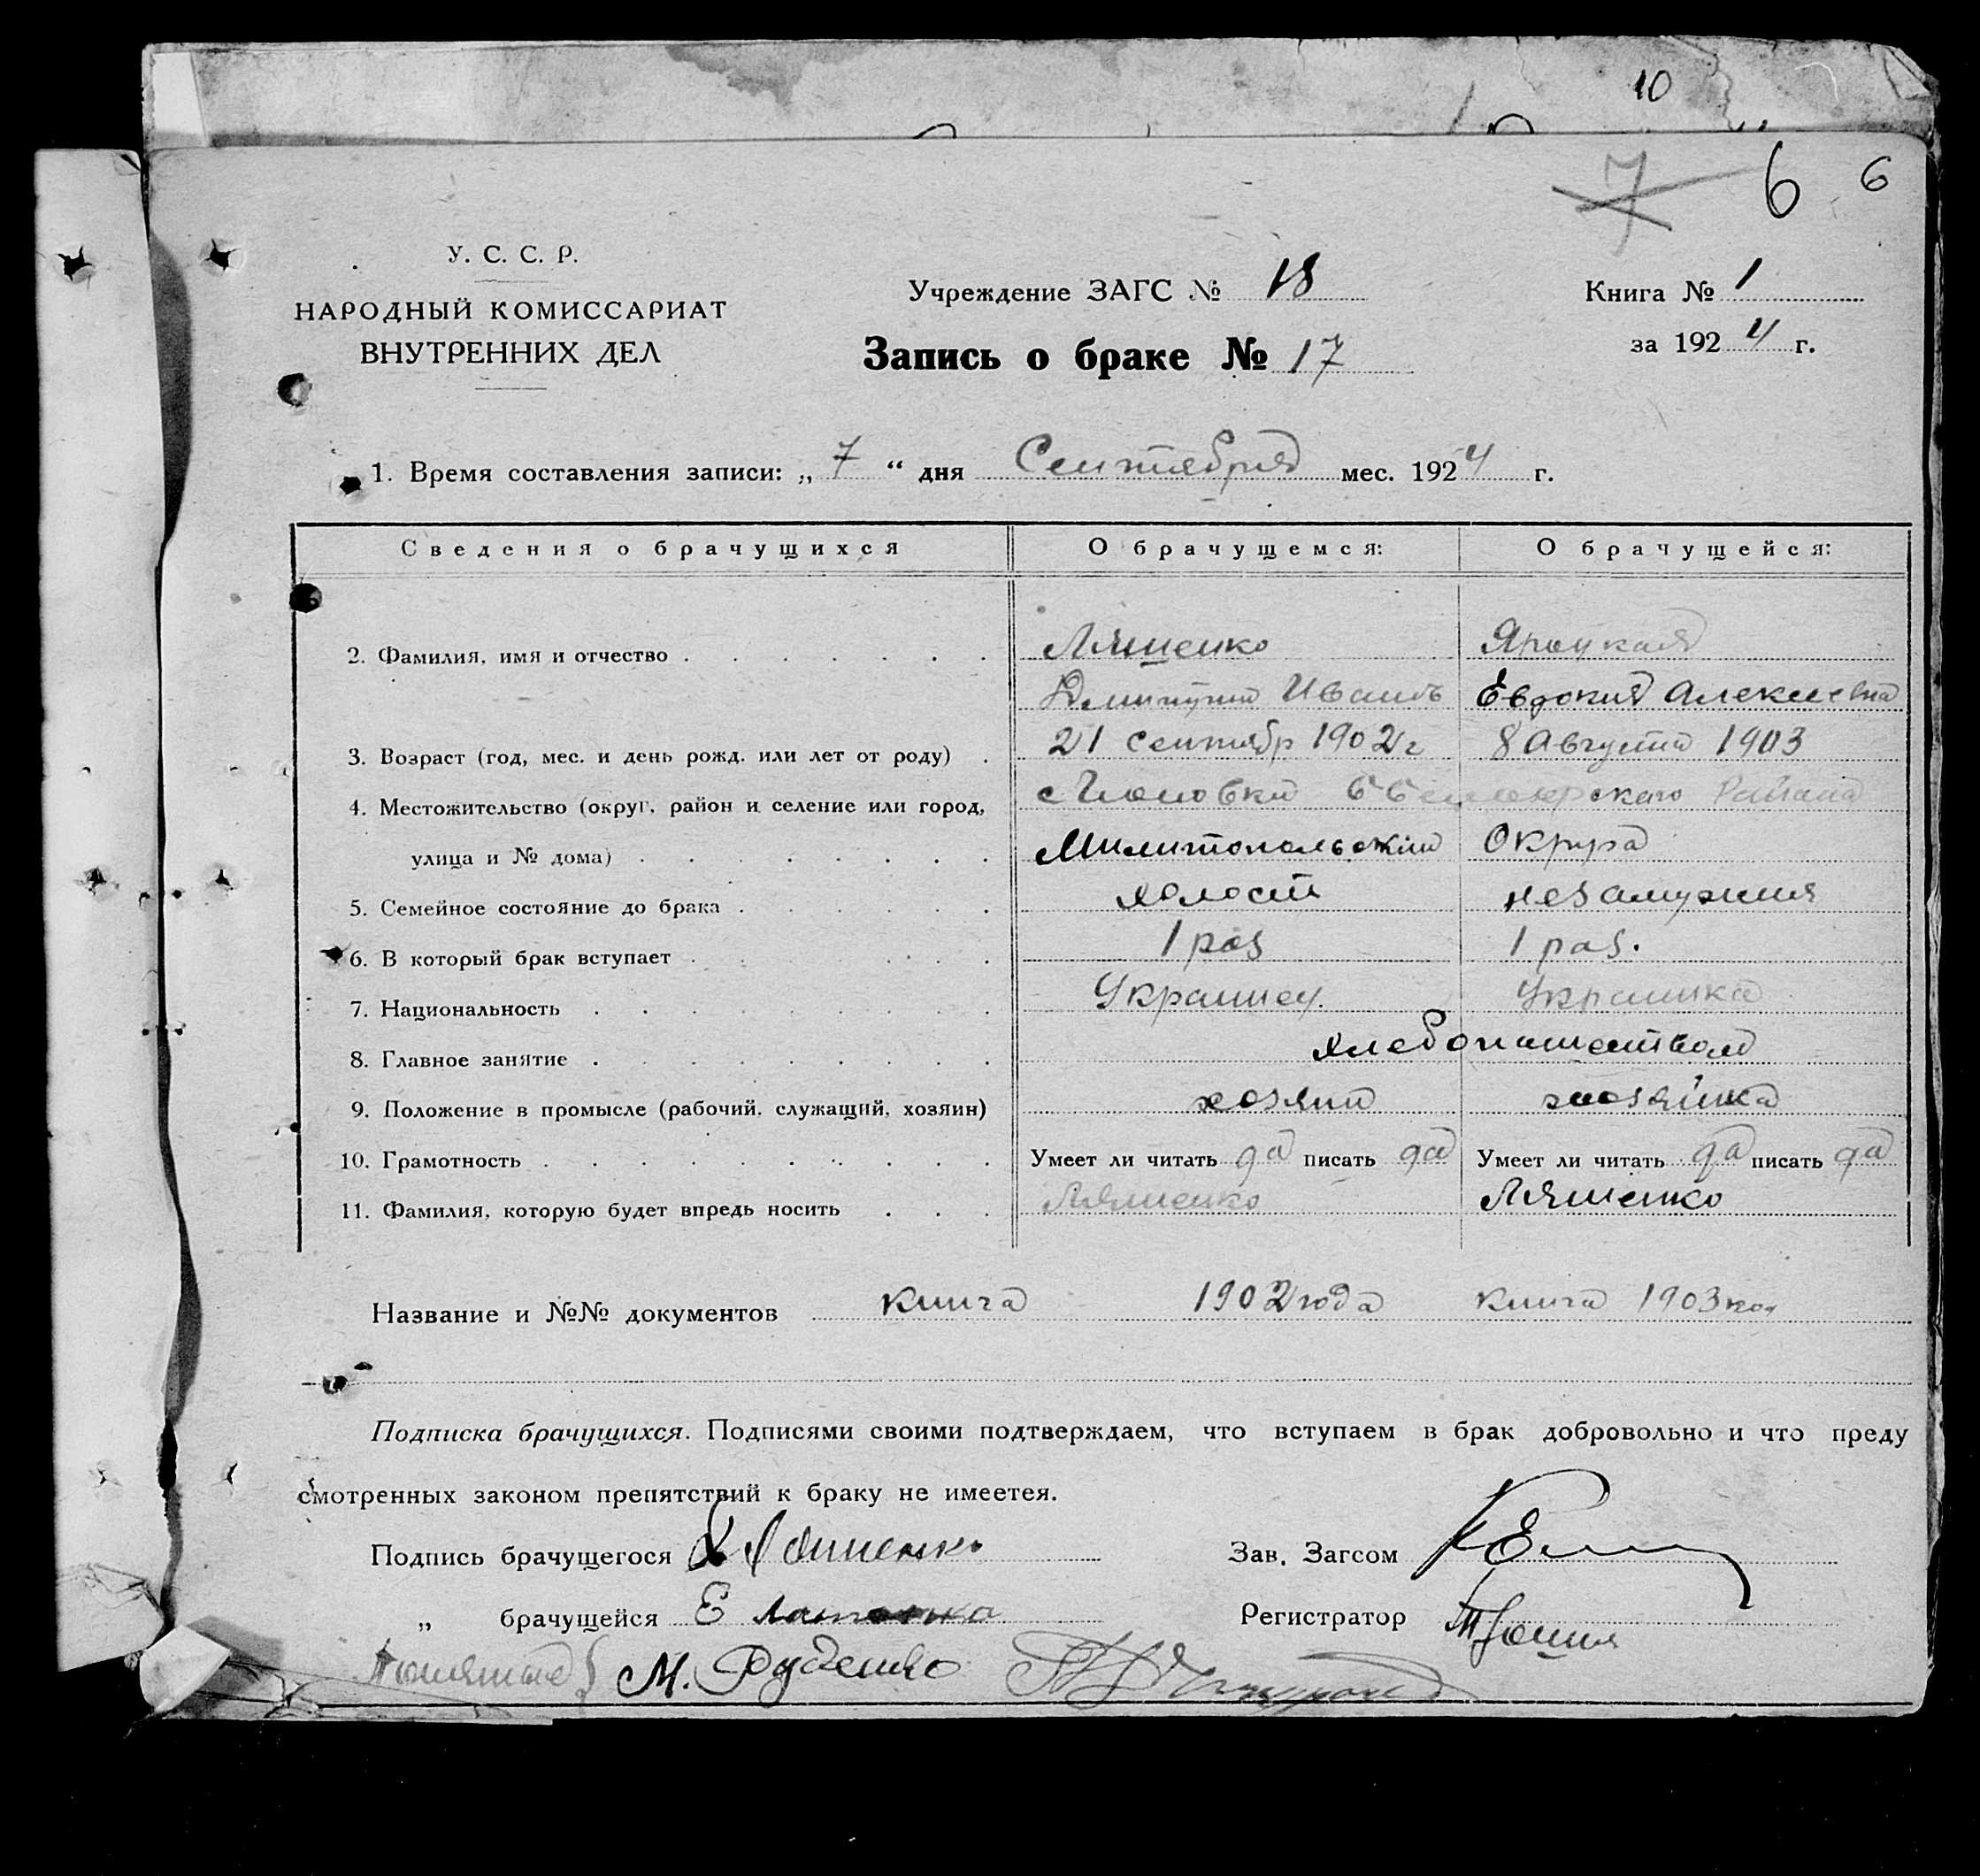 10
7 6 6
У. С. С. Р.
НАРОДНЫЙ КОМИССАРИАТ
ВНУТРЕННИХ ДЕЛ
Учреждение ЗАГС № 18
Запись о браке № 17
Книга № 1
за 1924 г.
1. Время составления записи: „7“ дня Сентября мес. 1924 г.
Сведения о брачущихся О брачущемся: О брачущейся:
2. Фамилия, имя и отчество Ляшенко Яроцкая
Дмитрий Иванов Евдокия Алексеевна
3. Возраст (год, мес. и день рожд. или лет от роду) 21 сентябр 1902 г 8 Августа 1903
4. Местожительство (округ, район и селение или город, района
улица и № дома) Милитопольский Округа
5. Семейное состояние до брака холост незамужняя
6. В который брак вступает 1 раз 1 раз.
7. Национальность Украинец. Украинка
8. Главное занятие хлебопашеством
9. Положение в промысле (рабочий, служащий, хозяин) хозяин хозяйка
10. Грамотность Умеет ли читать да писать да Умеет ли читать да писать да
11. Фамилия, которую будет впредь носить Ляшенко Ляшенко
Название и №№ документов книга 1902 года книга 1903
Подписка брачущихся. Подписями своими подтверждаем, что вступаем в брак добровольно и что преду
смотренных законом препятствий к браку не имеетея.
Подпись брачущегося Ляшенко Зав. Загсом
„ брачущейся Е Регистратор
М. Руденко